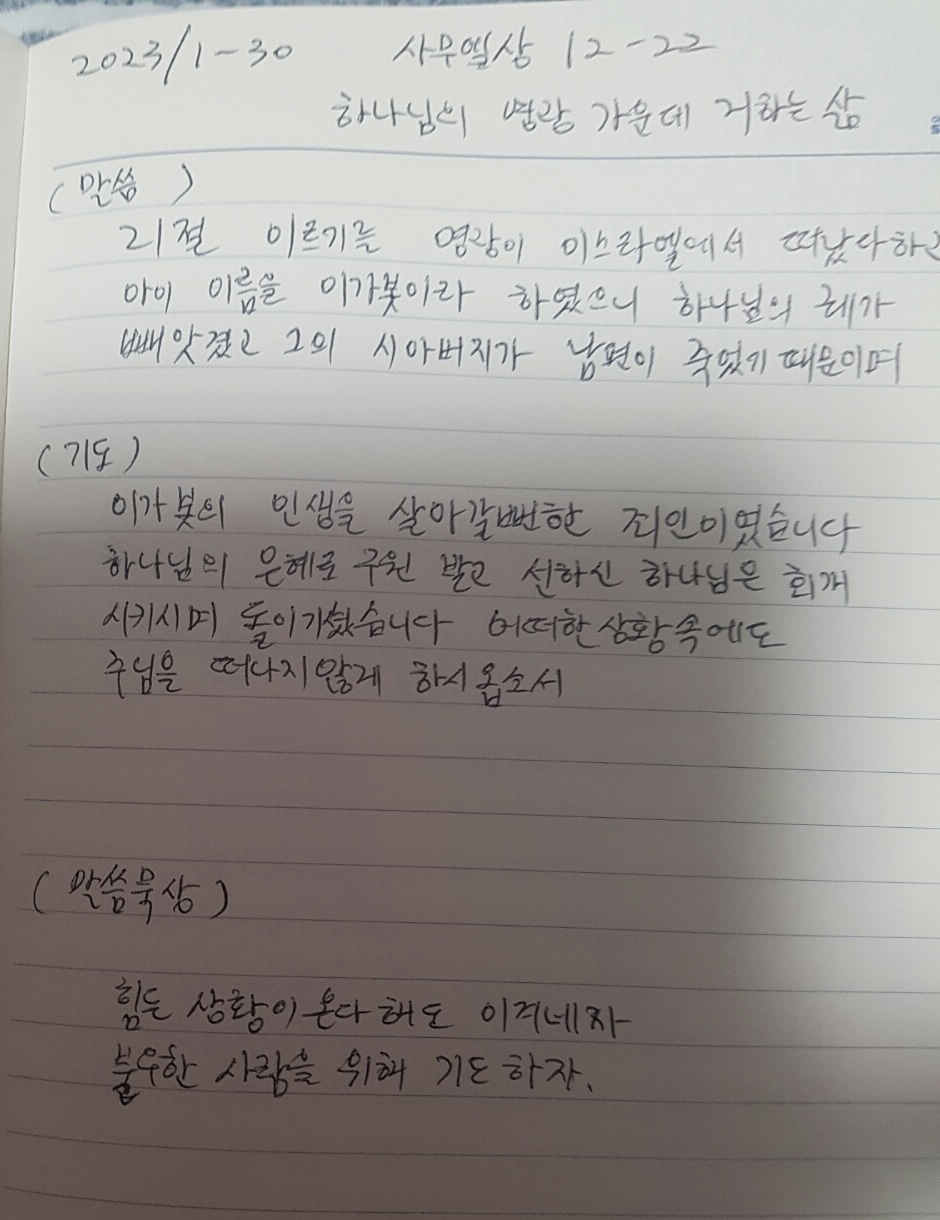 2023/1-30 사무엘상 12-22
하나님의 영광 가운데 거하는 삶
(말씀)
21절 이르기를 영광이 이스라엘에서 떠났다하고
아이 이름을 이가봇이라 하였으니 하나님의 궤가
빼앗겼고 그의 시아버지가 남편이 죽었기 때문이며
(기도)
이가봇의 인생을 살아갈뻔한 죄인이였습니다
하나님의 은혜로 구원 받고 선하신 하나님은 회개
시키시며 돌이키셨습니다 어떠한상황속에도
주님을 떠나지않게 하시옵소서
(말씀묵상)
힘든 상황이 온다해도 이겨네자
불우한 사람을 위해 기도하자.